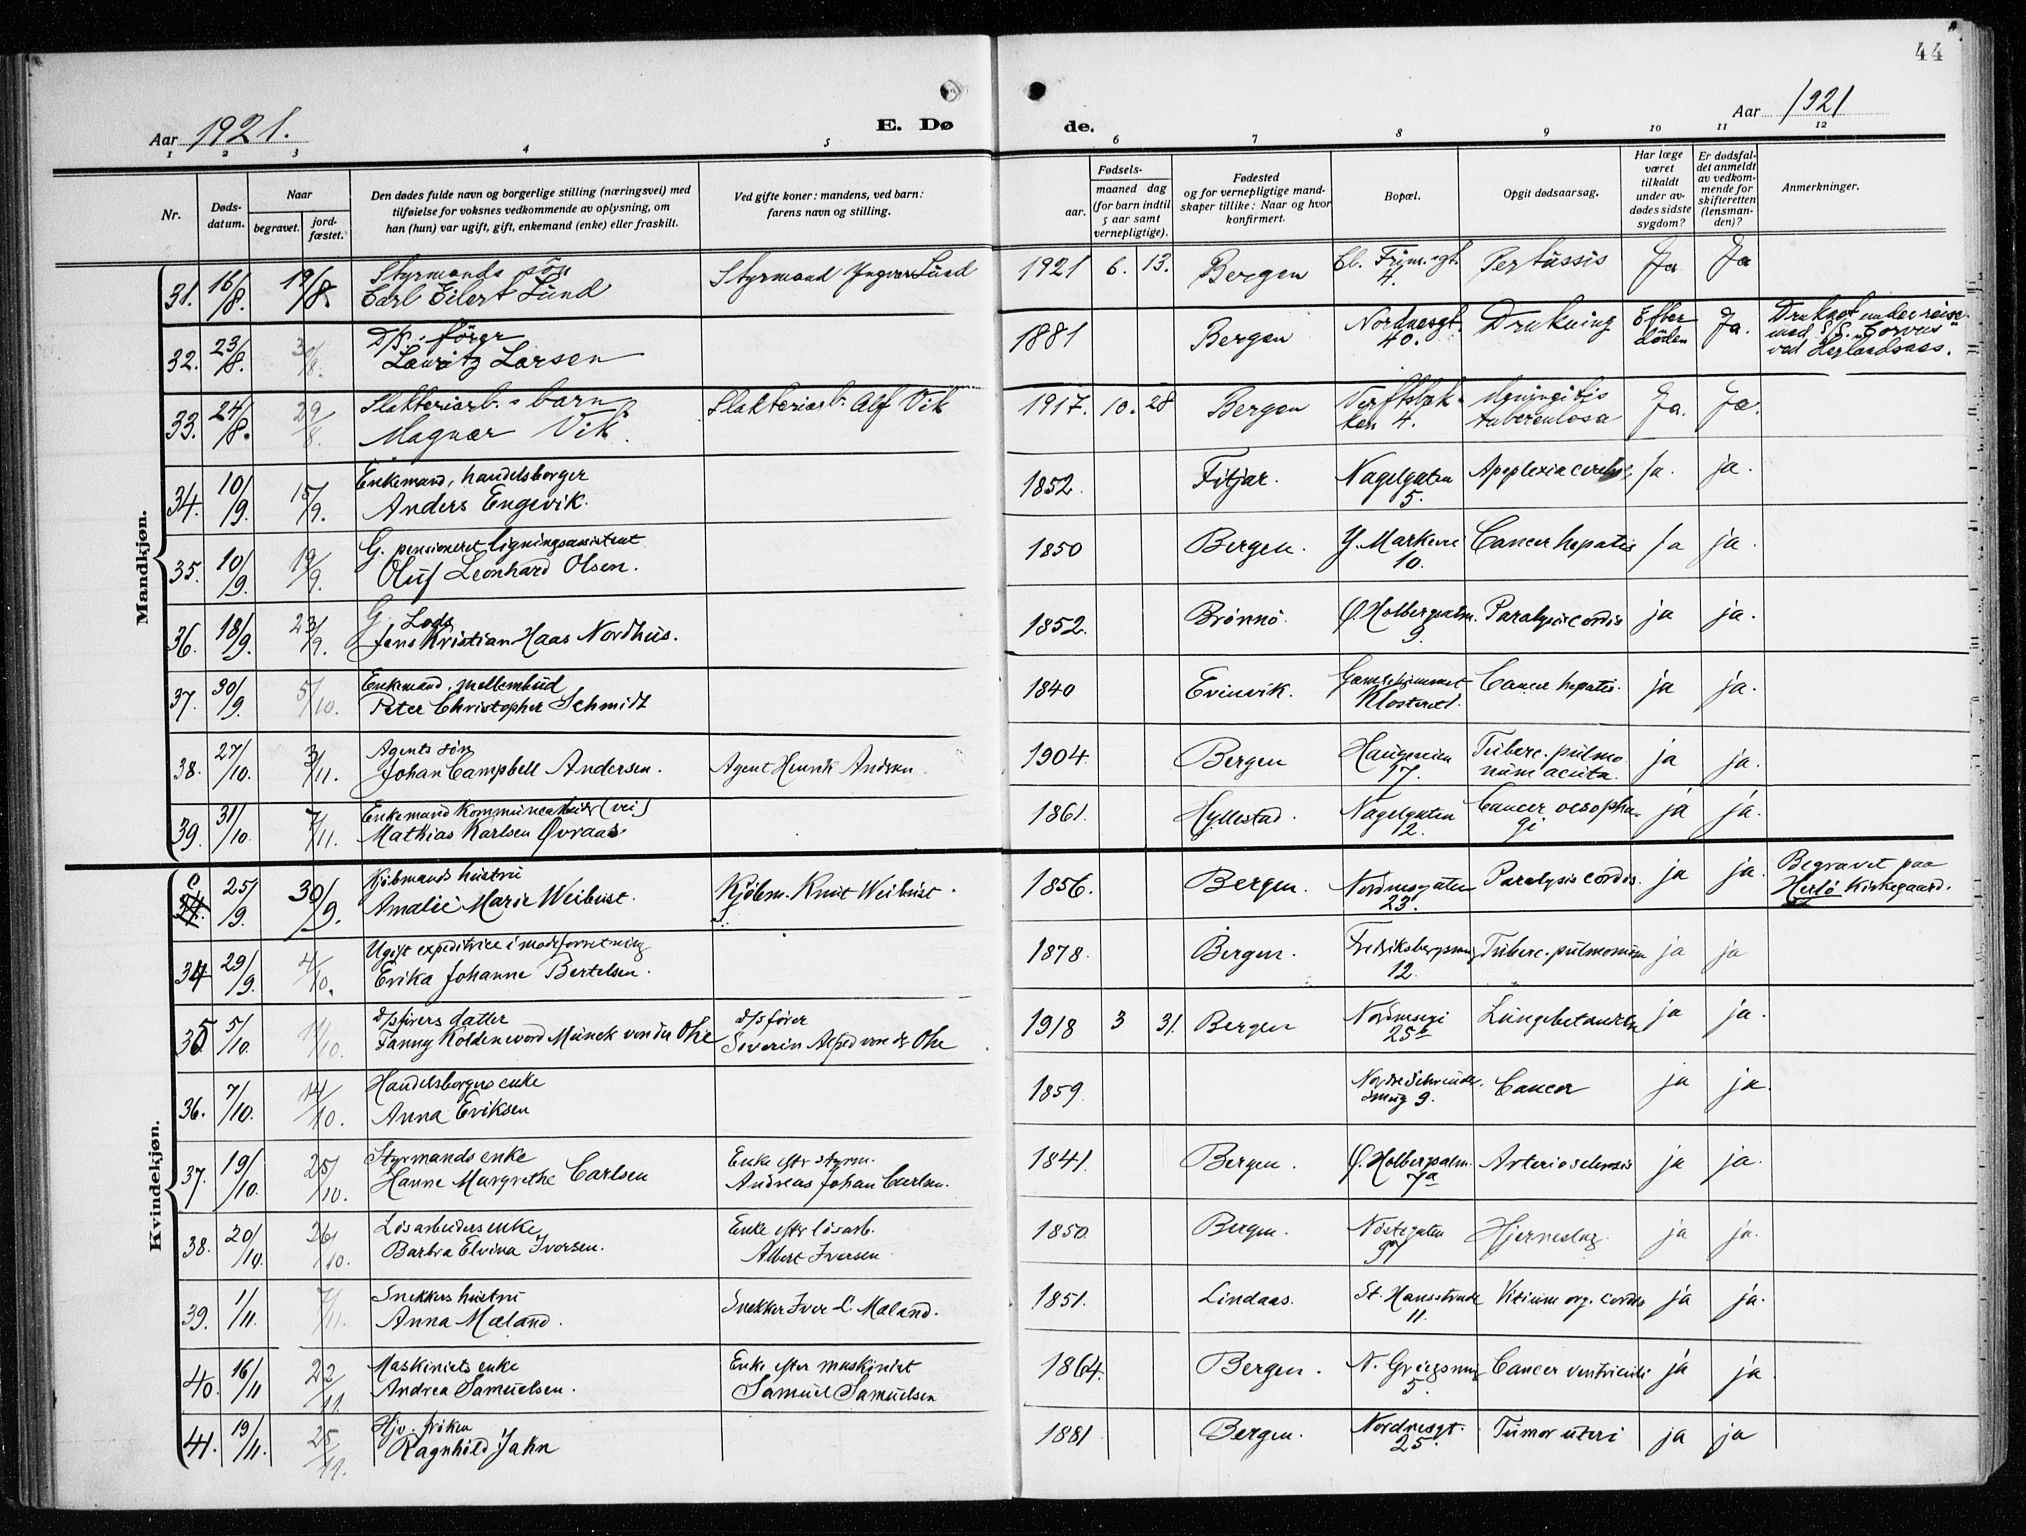 44
Aar 1921.
E. Dø
de.
Aar 1921
1 2 3 4 5 6 7 8 9 10 11 12
Nr.
Døds-
datum.
Naar
begravet.
jord-
fæstet.
Den dødes fulde navn og borgerlige stilling (næringsvei) med
tilføielse for voksnes vedkommende av oplysning, om
han (hun) var ugift, gift, enkemand (enke) eller fraskilt.
Ved gifte koner: mandens, ved barn:
farens navn og stilling.
Fødsels-
aar.
maaned dag
(for barn indtil
5 aar samt
vernepligtige).
Fødested
og for vernepligtige mand-
skaper tillike: Naar og hvor
konfirmert.
Bopæl.
Opgit dødsaarsag.
Har læge
været
tilkaldt
under av-
dødes sidste
sygdom?
Er dødsfal-
det anmeldt
av vedkom-
mende for
skifteretten
(lensman-
den)?
Anmerkninger.
Mandkjøn.
31. 16/8. 19/8. Styrmands søn
Carl Eilert Lund
Styrmand Yngvar Lund 1921 6. 13. Bergen 4. Pertussis Ja Ja
32. 23/8. D/S.s fører
Lauritz Larsen
1881 Bergen Nordnesgt. 40. Drukning Efter døden Ja. Druknet under reise
med S/S. "Corvus"
ved
33. 24/8. 29/8. Slakteriarb.s barn
Magnar Vik.
Slakteriarb. Alf Vik 1917. 10. 28 Bergen 4. Meningitis
tuberculosa Ja. Ja.
34. 10/9. 15/9. Enkemand, handelsborger
Anders Engevik.
1852. Fitjar. Nagelgaten 5. Apoplexia ja. ja.
35. 10/9. 19/9. G. pensioneret ligningsassistent
Oluf Leonhard Olsen.
1850 Bergen. Y. Markevei 10. Cancer hepatis ja ja.
36. 18/9. 23/9. G. Lods
Jens Kristian Haas Nordhus.
1852. Brønnø. Ø. Holbergsalm. 9. Paralysis cordis ja ja.
37. 30/9. 5/10. Enkemand,
Peter Christopher Schmidt
1840 Evinvik. Gamlehjemmet
Klosteret. Cancer hepatis. ja ja.
38. 27/10. 3/11. Agents søn
Johan Campbell Andersen.
Agent Henrik Andersen 1904. Bergen Haugeveien 17. Tuberc. pulmo
num acuta. ja ja.
39. 31/10. 7/11. Enkemand kommunearbeider (vei)
Mathias Karlsen Øvraas
1861. Hyllestad. Nagelgaten 12. Cancer oesopha-
gi ja ja.
Kvindekjøn.
25/9. 30/9. Kjøbmands hustru
Amalie Marie Weibust.
Kjøbm. Knut Weibust. 1856. Bergen. Nordnesgaten 23. Paralysis cordis. ja ja. Begravet paa
Herlø Kirkegaard.
34 29/9. 4/10. Ugift expeditrice i modeforretning
Erika Johanne Bertelsen.
1878. Bergen. Fredriksbergsmug 12. Tuberc. pulmonum ja ja
35. 5/10. 11/10. D/Sførers datter
Fanny Koldenword Munck von der Ohe
d/s fører
Severin Alfred von der Ohe 1918 3 31. Bergen Nordnesvei 25b Lungebetændelse ja ja.
36. 7/10. 14/10. Handelsborgers enke
Anna Eriksen
1859. smug 9. Cancer ja ja.
37. 19/10. 25/10. Styrmands enke
Hanne Margrethe Carlsen
Enke efter styrm.
Andreas Johan Carlsen. 1841. Bergen. Ø. Holbergsalm. 7a Arteriosclerosis ja ja.
38. 20/10. 26/10. Løsarbeiders enke
Barbra Elvina Iversen.
Enke efter løsarb.
Albert Iversen 1850. Bergen. Nøstegaten 97 Hjerneslag. ja ja.
39. 1/11. 7/11. Snekkers hustru
Anna Mæland.
Snekker Iver L. Mæland. 1851. Lindaas. St. Hansstræde 11. Vitium org. cordis ja ja.
40. 16/11 22/11. Maskinists enke
Andrea Samuelsen.
Enke efter maskinist
Samuel Samuelsen 1864. Bergen. N. Griegsmug 5. Cancer ventriculi ja ja.
41. 19/11. 25/11. Hjv. frøken
Ragnhild Jahn
1881 Bergen. Nordnesgt. 25. Tumor uteri ja ja